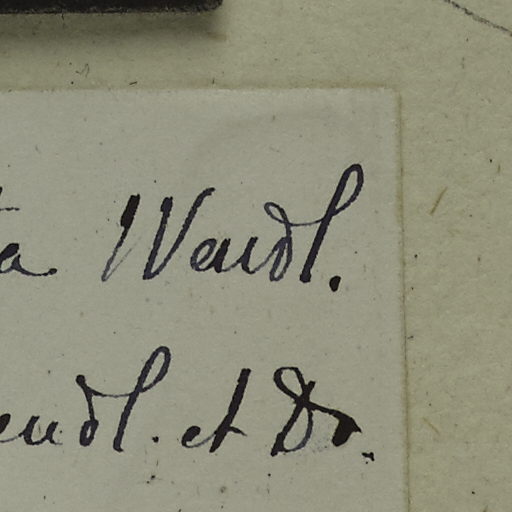 ta Wendl.
endl. et Dr.